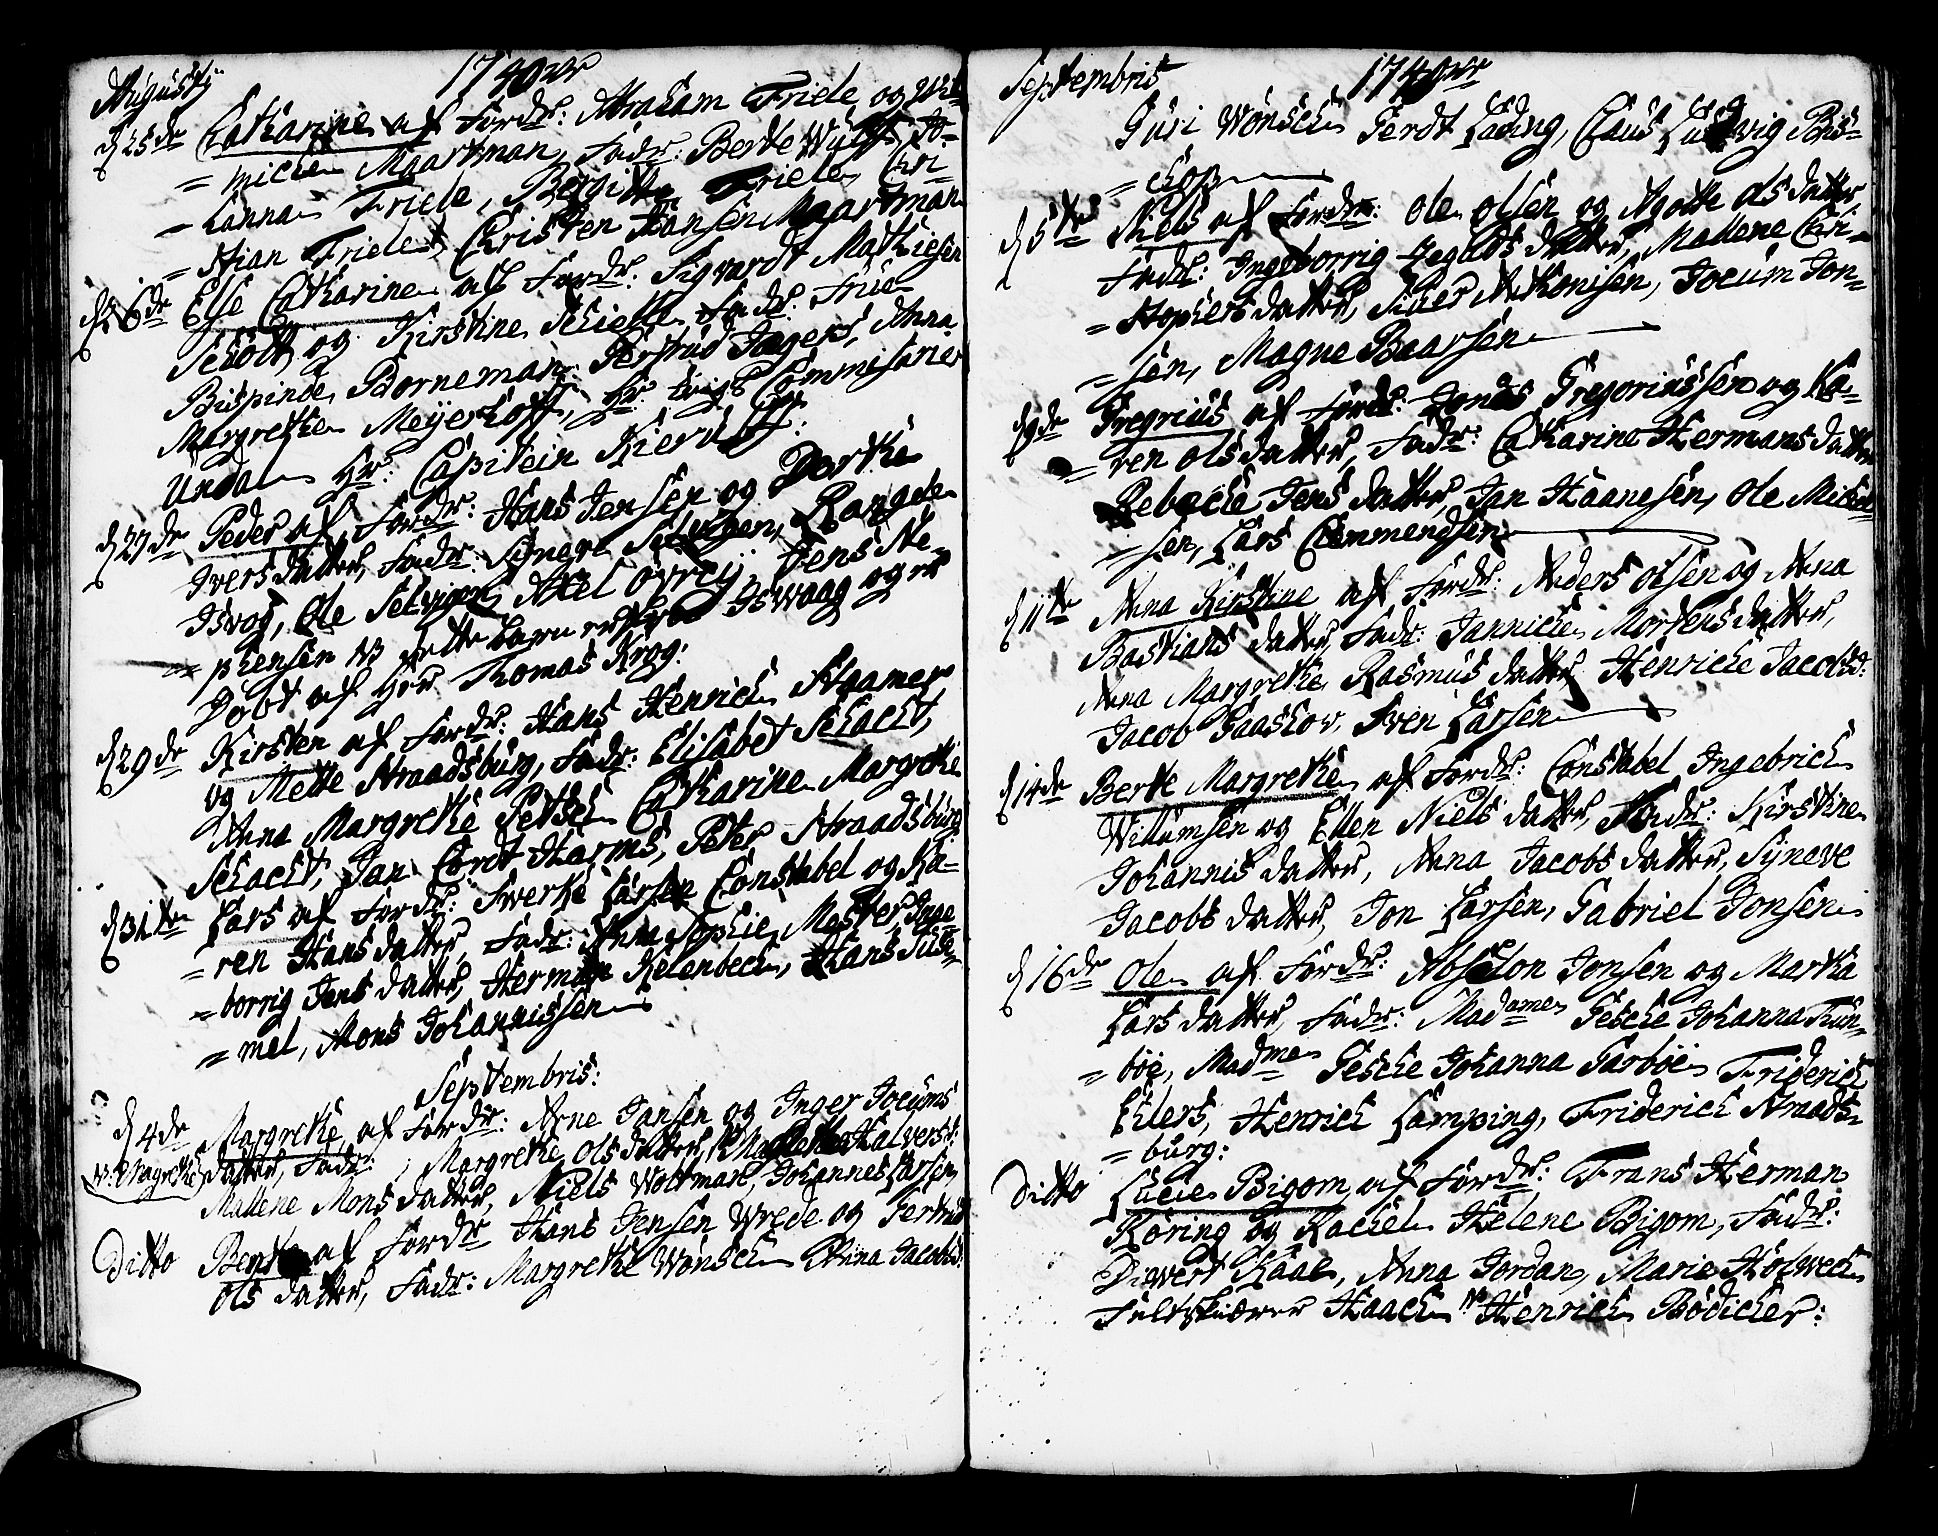 Augusti 1740ve
d 25de Catharine af Fordr: Abraham Friele og Wil-
= miche Maartman, Fadr: Berte Wylff, Jo-
= hanna Friele, Bergitte Friele, Chri-
= stian Friele, Christen Hansen Maartman
d 26de Else Catharine af Fordr: Sigvardt Mathiesen
Schött og Kirstine Schielte, Fadr: Frue
Bispinde Borneman, Gertrud Jægers, Anna
Margrethe Meyerhoff, Hr: krigs Commisarier
Undal Hr: Capitein Kierulff:
d 27de Peder af Fordr: Hans Jensen og Dorthe
Ivers datter, Fadr: Signegre Selvigen, Rangde
Isvog, Ole Selvigen, Axel Övrey, Jens Ste-
= phensen NB dette barn er fra Iswaag og er
Döbt af Hr Thomas Krog:
d 29de Kirsten af Fordr: Hans Henrich Staamer
og Mette Straadsburg, Fadr: Elisabet Schacht,
Anna Margrethe Petsel, Catharine Margrethe
Schacht, Jan Cordt Harms, Peter Straadsburg
d 31te Lars af Fordr: Sverke Larsen Constabel og Ka-
= ren Hans datter, Fadr: Anna Sophie Mester, Inge
= borrig Jens datter, Herman Kelenbech, Hans Sute-
= mel, Mons Johannissen
Septembris:
d 4de Margrethe af Fordr: Arne Jansen og Inger Jocums
N: Margrethe datter, Fadr: Margrethe Ols datter, Halversd:
Mallene Mons datter, Niels Woltmar, Johannes Larsen
Ditto Bente af Fordr Hans Jensen Wrede og Gertrud
Ols datter, Fadr: Margrethe Wönsch Anna Jacobsd:
Septembris 1740ve
Guri Wönsch Gerdt Lading, Claus Ludwig Bis-
= chop
d 5te Niels af Fordr: Ole Olsen og Agothe Ols datter,
Fadr: Ingeborrig Legaids datter, Mallene Chri-
= stophers datter, Siver Anthonisen, Jocum Jon-
= sen, Magne Baarsen
d 9de Gregrius af Fordr: Jonas Gregoriussen og Ka-
= ren Ols datter, Fadr: Catharine Hermans datter
Rebecke Jens datter, Jan Haanesen, Ole Michel-
= sen, Lars Clemmendsen
d 11te Anna Kirstine af Fordr: Anders Olsen og Anna
Bastians datter, Fadr: Jannicke Mortens datter,
Anna Margrethe Rasmus datter, Henriche Jacobsd:
Jacob Gaashov, Sven Larsen
d 14de Berte Margrethe af Fordr: Constabel Ingebrich
Willumsen og Ellen Niels datter, Fadr: Kirstine
Johannis datter, Anna Jacobs datter, Syneve
Jacobs datter, Jon Larsen, Gabriel Jonsen
d 16de Ole af Fordr: Abselon Jonsen og Martha
Lars datter, Fadr: Madame Gesche Johanna Tun-
= böe, Madme Gesche Johanna Garböe, Friderich
Ehlers, Henrich Lamping, Friderich Straads-
= burg:
Ditto Lucie Bigom af Fordr: Frans Herman
Röring og Rachel Helene Bigom, Fadr:
Diwert Kaae, Anna Jordan, Marie Holvech
Feltskiærer Haach Hr Henrich Bödicher: